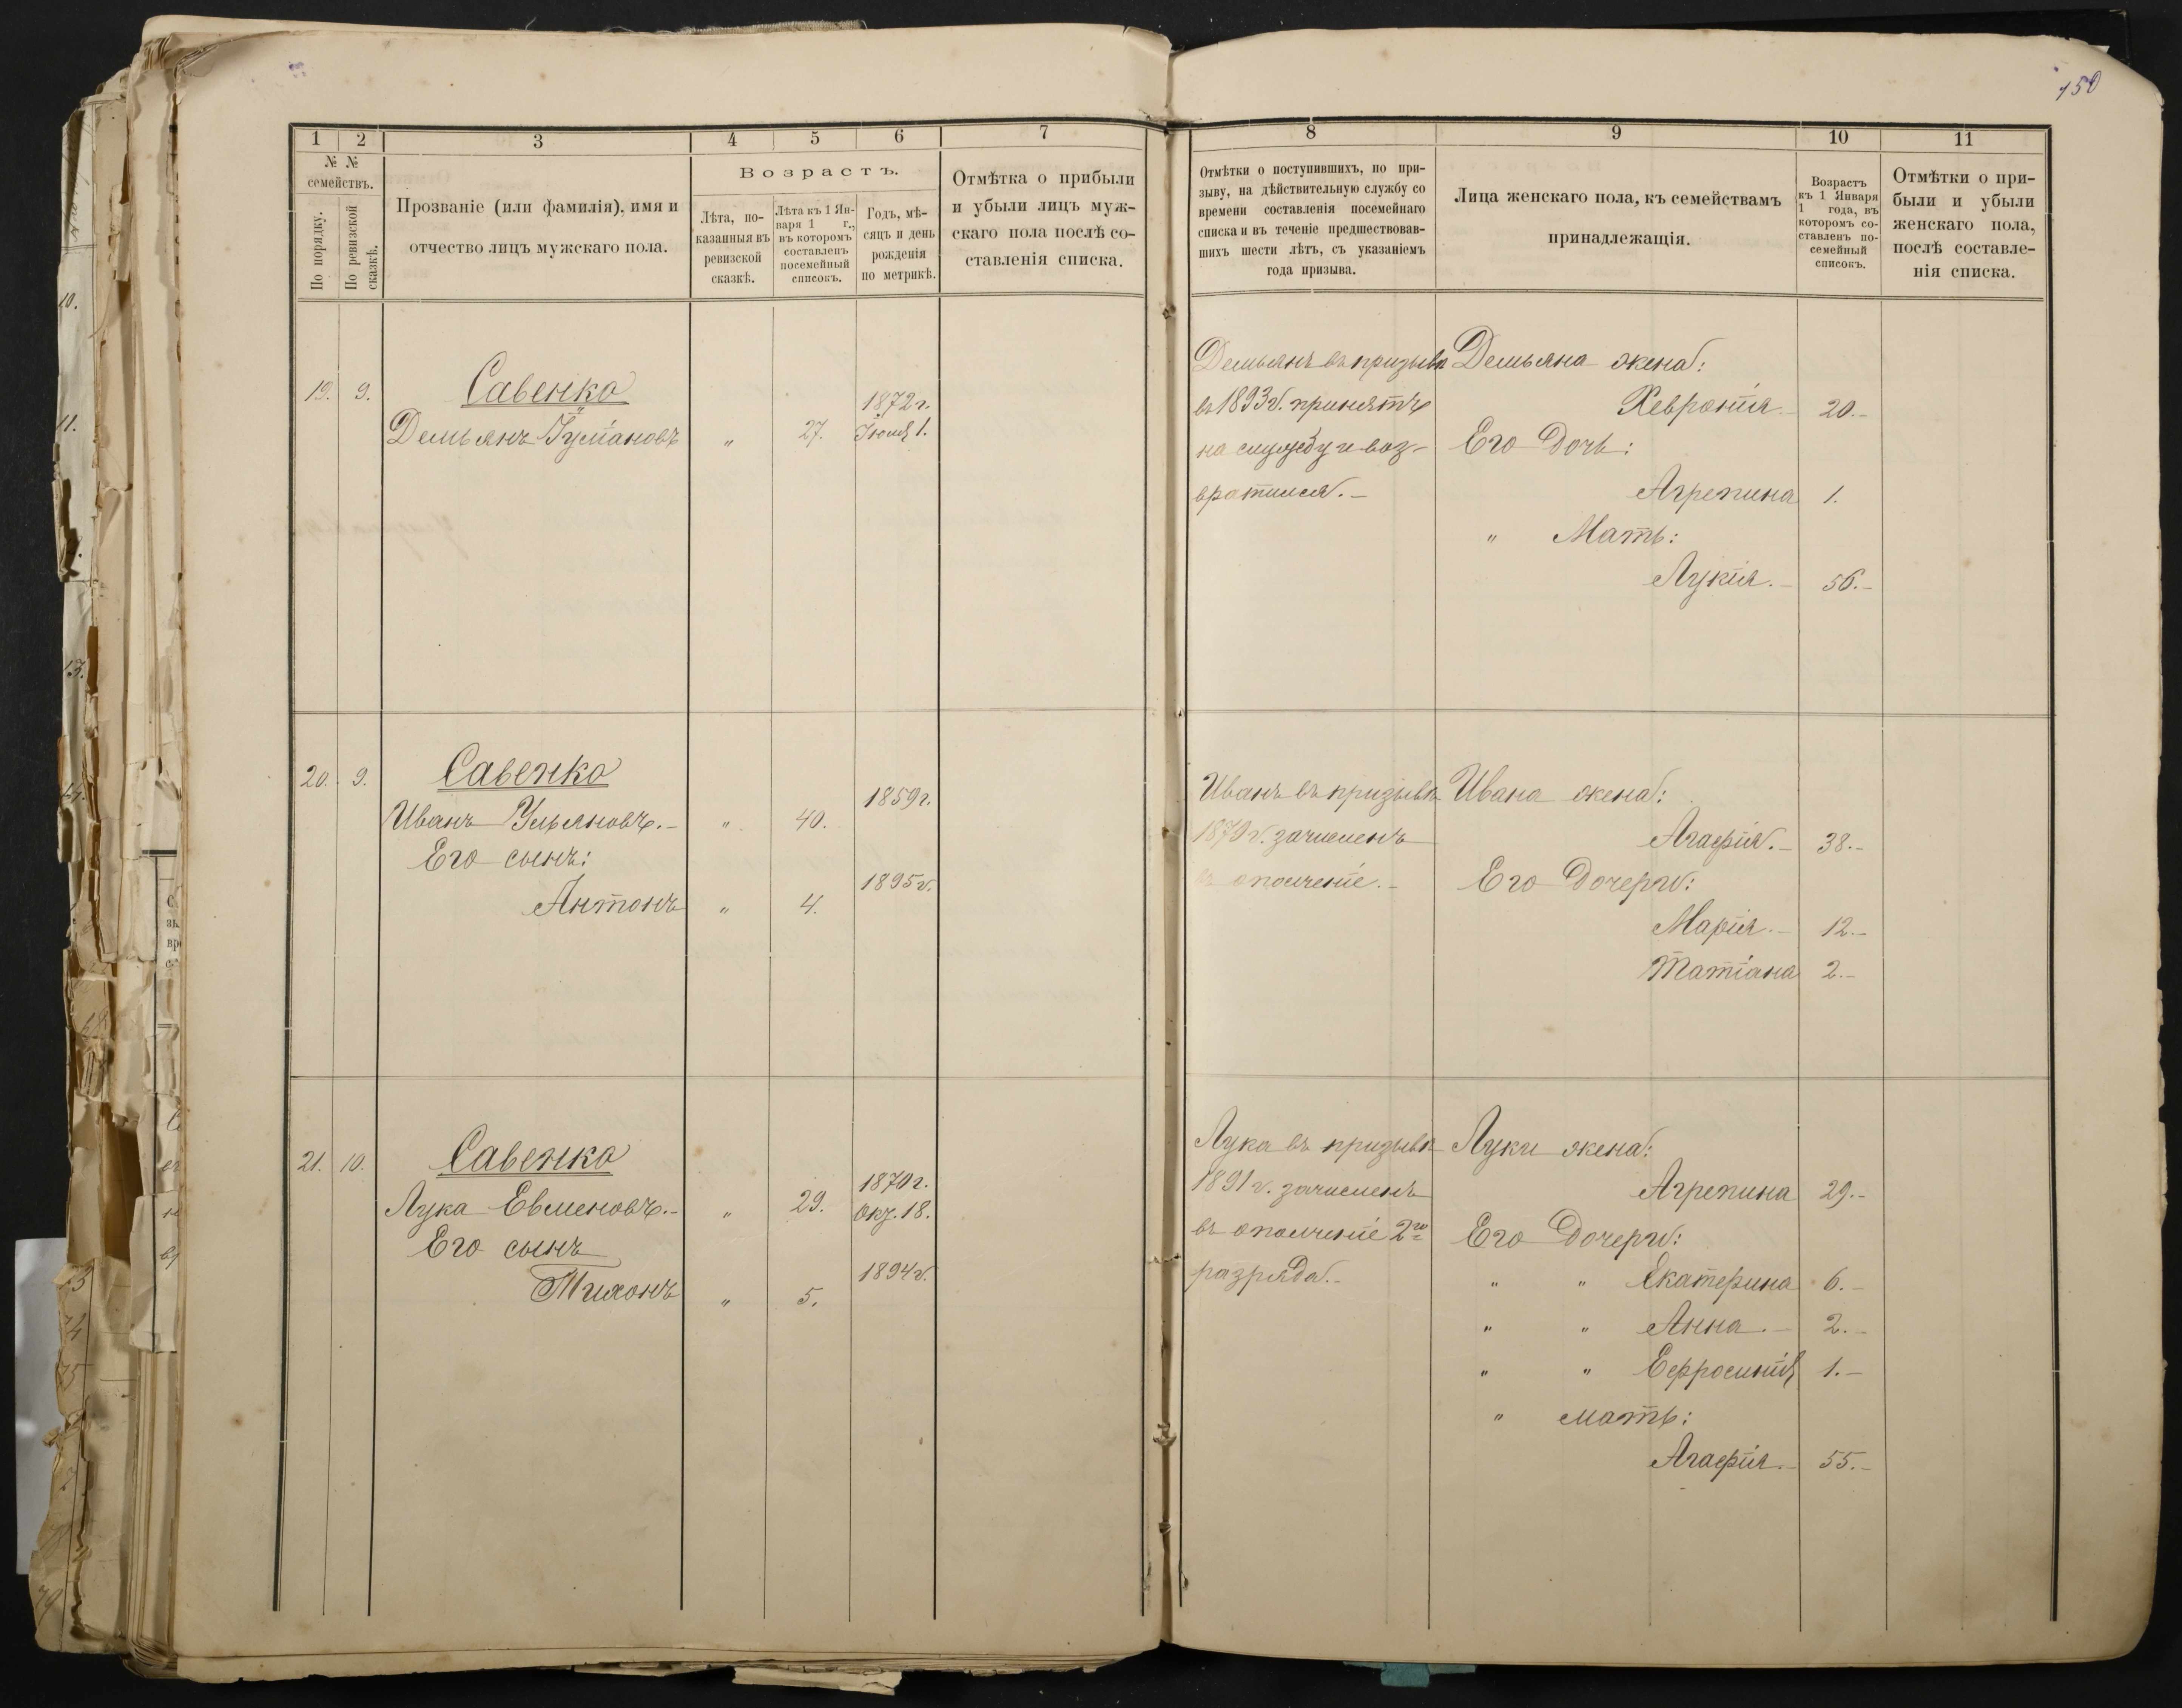 150
1 2 3 4 5 6 7
№ №
семействъ.
По порядку.
По ревизской
сказкѣ.
Прозваніе (или фамилія), имя и
отчество лицъ мужскаго пола.
Возрастъ.
Лѣта, по-
казанныя въ
ревизской
сказкѣ.
Лѣта къ 1 Ян-
варя 1 г.,
въ которомъ
составленъ
посемейный
списокъ.
Годъ, мѣ-
сяцъ и день
рожденія
по метрикѣ.
Отмѣтка о прибыли
и убыли лицъ муж-
скаго пола послѣ со-
ставленія списка.
19. 9. Савенко
1872 г.
Демьянъ " 27. Іюля 1.
20. 9. Савенко
1859 г.
Иванъ Ульяновъ.- " 40.
Его сынъ:
1895 г.
Антонъ " 4.
21. 10. Савенко
1870 г.
Лука Евменовъ.- " 29. Окт. 18.
Его сынъ
1894 г.
Тихонъ " 5.
8 9 10 11
Отмѣтки о поступившихъ, по при-
зыву, на дѣйствительную службу со
времени составленія посемейнаго
списка и въ теченіе предшествовав-
шихъ шести лѣтъ, съ указаніемъ
года призыва.
Лица женскаго пола, къ семействамъ
принадлежащія.
Возрастъ
къ 1 Января
1 года, въ
которомъ со-
ставленъ по-
семейный
списокъ.
Отмѣтки о при-
были и убыли
женскаго пола,
послѣ составле-
нія списка.
Демьянъ въ призывъ
въ 1893 г. принятъ
на службу и воз-
вратился.-
Демьяна жена:
Хевронія.- 20.-
Его дочь:
Агрепина 1.
" Мать:
Лукія.- 56.-
Иванъ въ призывъ
1879 г. зачисленъ
въ ополченіе.-
Ивана жена:
Агафія.- 38.-
Его дочери:
Марія.- 12.-
Татіана 2.-
Лука въ призывъ
1891 г. зачисленъ
въ ополченіе 2го
разряда.-
Луки жена:
Агрепина 29.-
Его дочери:
" " Екатерина 6.-
" " Анна.- 2.-
" " Ефросинія 1.-
" мать:
Агафія.- 55.-